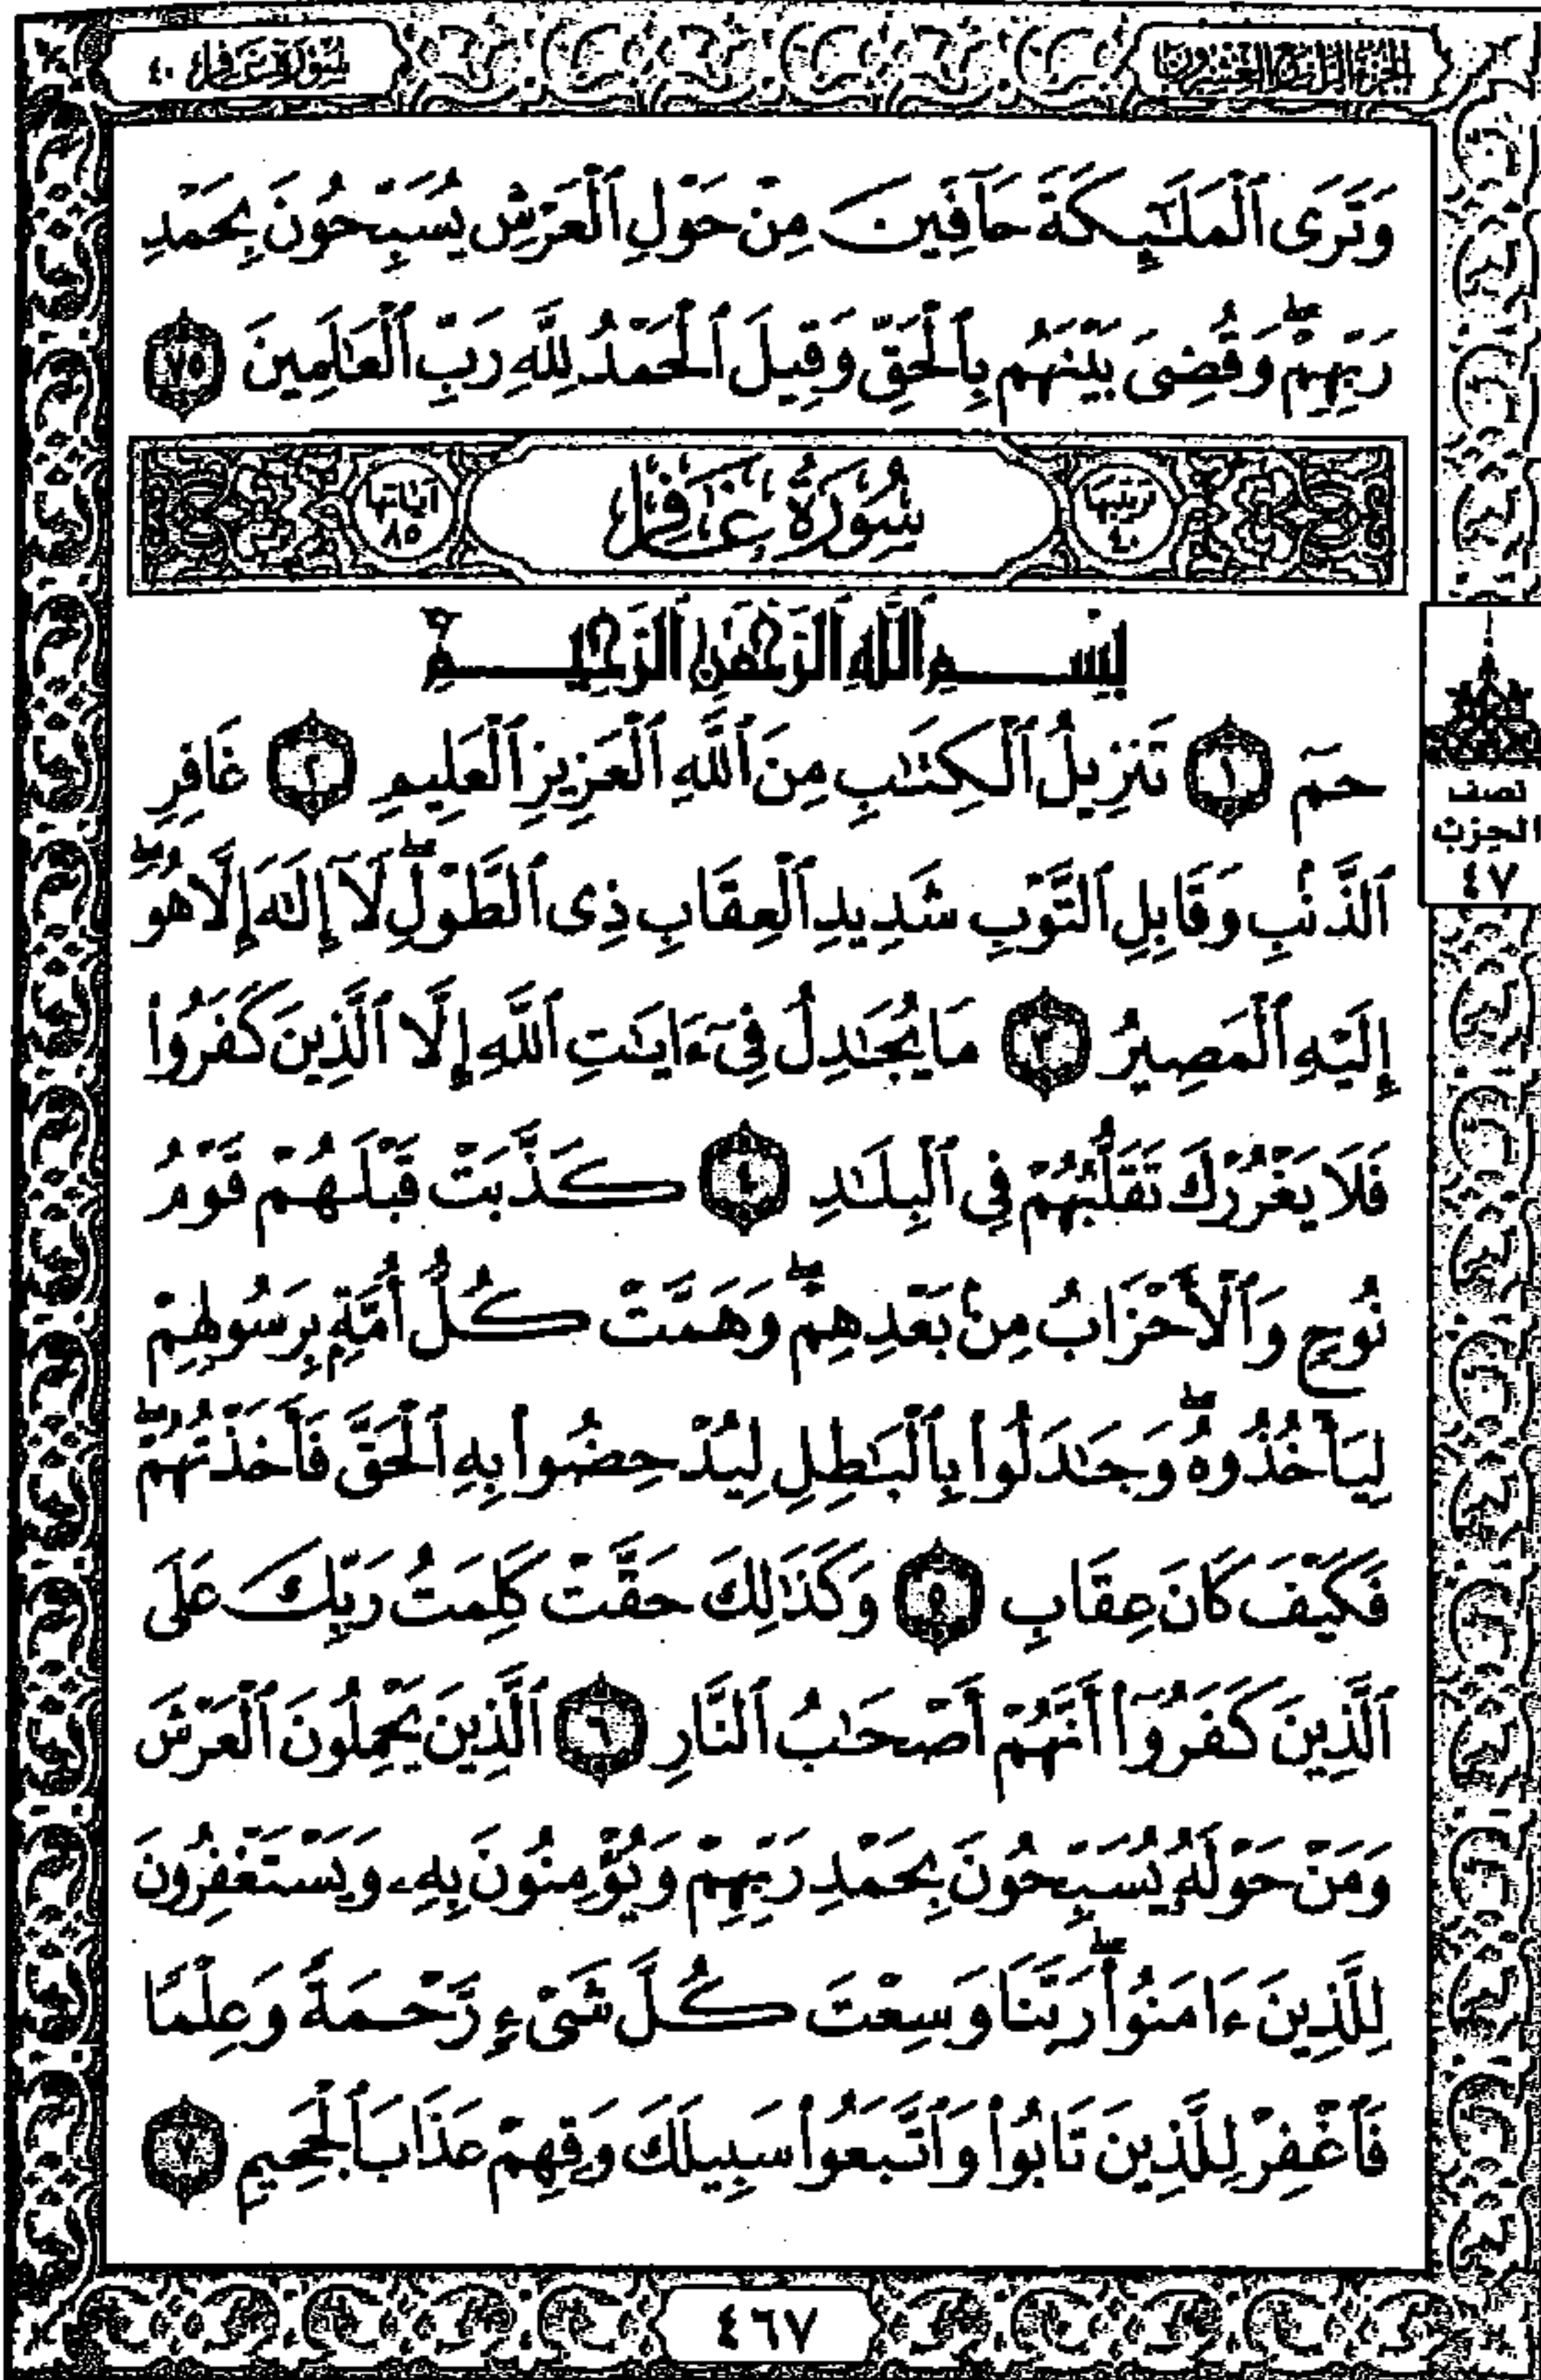 الجزء الرابع والعشرون
سورة غافر ٤٠
وَتَرَى ٱلْمَلَـٰٓئِكَةَ حَآفِّينَ مِنْ حَوْلِ ٱلْعَرْشِ يُسَبِّحُونَ بِحَمْدِ
رَبِّهِمْ ۖ وَقُضِىَ بَيْنَهُم بِٱلْحَقِّ وَقِيلَ ٱلْحَمْدُ لِلَّهِ رَبِّ ٱلْعَـٰلَمِينَ ٧٥
ترتيبها ٤٠
سُورَةُ غَافِر
آياتها ٨٥
بِسْمِ ٱللَّهِ ٱلرَّحْمَـٰنِ ٱلرَّحِيمِ
حمٓ ١ تَنزِيلُ ٱلْكِتَـٰبِ مِنَ ٱللَّهِ ٱلْعَزِيزِ ٱلْعَلِيمِ ٢ غَافِرِ
ٱلذَّنۢبِ وَقَابِلِ ٱلتَّوْبِ شَدِيدِ ٱلْعِقَابِ ذِى ٱلطَّوْلِ ۖ لَآ إِلَـٰهَ إِلَّا هُوَ ۖ
إِلَيْهِ ٱلْمَصِيرُ ٣ مَا يُجَـٰدِلُ فِىٓ ءَايَـٰتِ ٱللَّهِ إِلَّا ٱلَّذِينَ كَفَرُوا۟
فَلَا يَغْرُرْكَ تَقَلُّبُهُمْ فِى ٱلْبِلَـٰدِ ٤ كَذَّبَتْ قَبْلَهُمْ قَوْمُ
نُوحٍ وَٱلْأَحْزَابُ مِنۢ بَعْدِهِمْ ۖ وَهَمَّتْ كُلُّ أُمَّةٍۭ بِرَسُولِهِمْ
لِيَأْخُذُوهُ ۖ وَجَـٰدَلُوا۟ بِٱلْبَـٰطِلِ لِيُدْحِضُوا۟ بِهِ ٱلْحَقَّ فَأَخَذْتُهُمْ ۖ
فَكَيْفَ كَانَ عِقَابِ ٥ وَكَذَٰلِكَ حَقَّتْ كَلِمَتُ رَبِّكَ عَلَى
ٱلَّذِينَ كَفَرُوٓا۟ أَنَّهُمْ أَصْحَـٰبُ ٱلنَّارِ ٦ ٱلَّذِينَ يَحْمِلُونَ ٱلْعَرْشَ
وَمَنْ حَوْلَهُۥ يُسَبِّحُونَ بِحَمْدِ رَبِّهِمْ وَيُؤْمِنُونَ بِهِۦ وَيَسْتَغْفِرُونَ
لِلَّذِينَ ءَامَنُوا۟ ۖ رَبَّنَا وَسِعْتَ كُلَّ شَىْءٍ رَّحْمَةً وَعِلْمًا
فَٱغْفِرْ لِلَّذِينَ تَابُوا۟ وَٱتَّبَعُوا۟ سَبِيلَكَ وَقِهِمْ عَذَابَ ٱلْجَحِيمِ ٧
نصف
الحزب
٤٧
٤٦٧